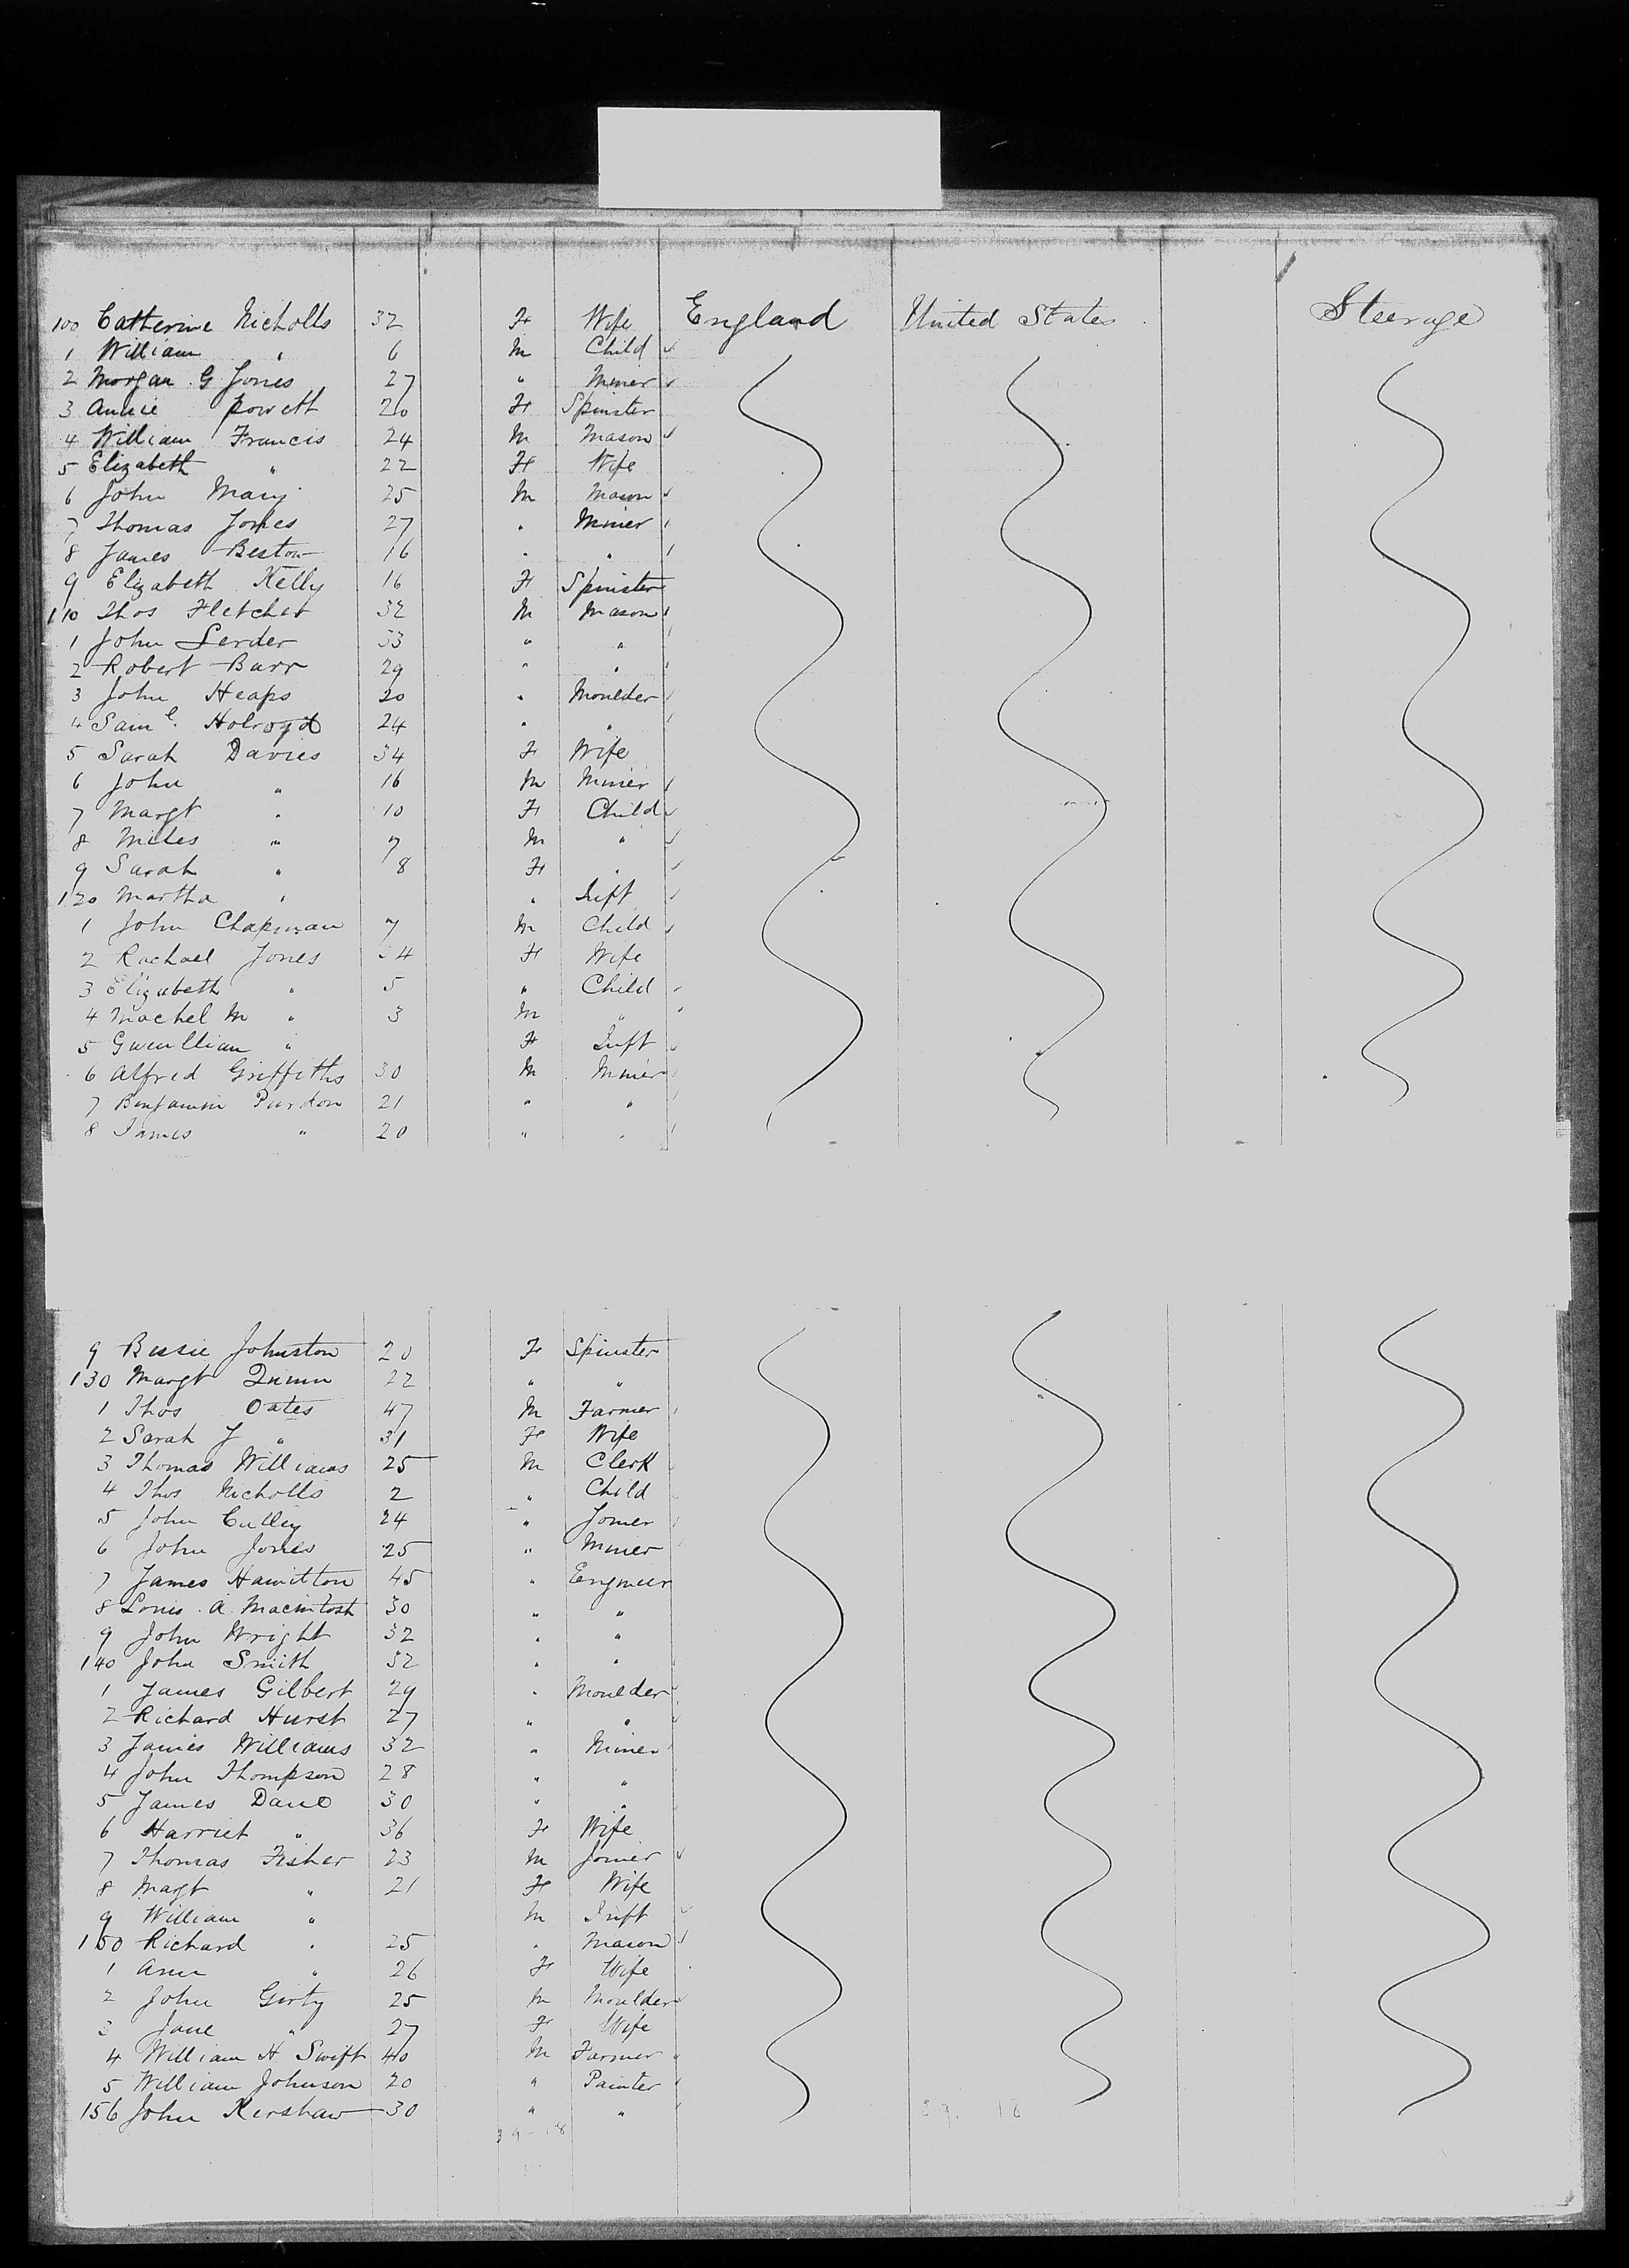 100 Catherine Nicholls 32 F Wife England United States Steerage
1 William " 6 M Child
2 Morgan G Jones 27 " Miner
3 Annie Powell 20 F Spinster
4 William Francis 24 M Mason
5 Elizabeth " 22 F Wife
6 John Many 25 M Mason
7 Thomas Jones 27 " Miner
8 James Beston 16 " "
9 Elizabeth Kelly 16 F Spinster
110 Thos Fletcher 32 M Mason
1 John Lerder 33 " "
2 Robert Barr 29 " "
3 John Heaps 20 " Moulder
4 Saml. Holroyd 24 " "
5 Sarah Davies 34 F Wife
6 John " 16 M Miner
7 Margt " 10 F Child
8 Miles " 7 M "
9 Sarah " 8 F "
120 Martha " " Inft
1 John Chapman 7 M Child
2 Rachael Jones 4 F Wife
3 Elizabeth " 5 " Child
4 Machel M " 3 M "
5 Gwenllian " F Inft
6 Alfred Griffiths 30 M Miner
7 Benjamin Purdon 21 " "
8 James " 20 " "
9 Bessie Johnston 20 F Spinster
130 Margt Quinn 22 " "
1 Thos Oates 47 M Farmer
2 Sarah J " 31 F Wife
3 Thomas Williams 25 M Clerk
4 Thos Nicholls 2 " Child
5 John Culley 24 " Joiner
6 John Jones 25 " Miner
7 James Hamilton 45 " Engineer
8 Louis A. Macintosh 30 " "
9 John Wright 32 " "
140 John Smith 32 " "
1 James Gilbert 29 " Moulder
2 Richard Hurst 27 " "
3 James Williams 32 " Miner
4 John Thompson 28 " "
5 James Dane 30 " "
6 Harriet " 36 F Wife
7 Thomas Fisher 23 M Joiner
8 Magt " 21 F Wife
9 William " M Inft
150 Richard " 25 " Mason
1 Ann " 26 F Wife
2 John Girty 25 M Moulder
3 Jane " 27 F Wife
4 William H Swift 40 M Farmer
5 William Johnson 20 " Painter
156 John Kershaw 30 " "